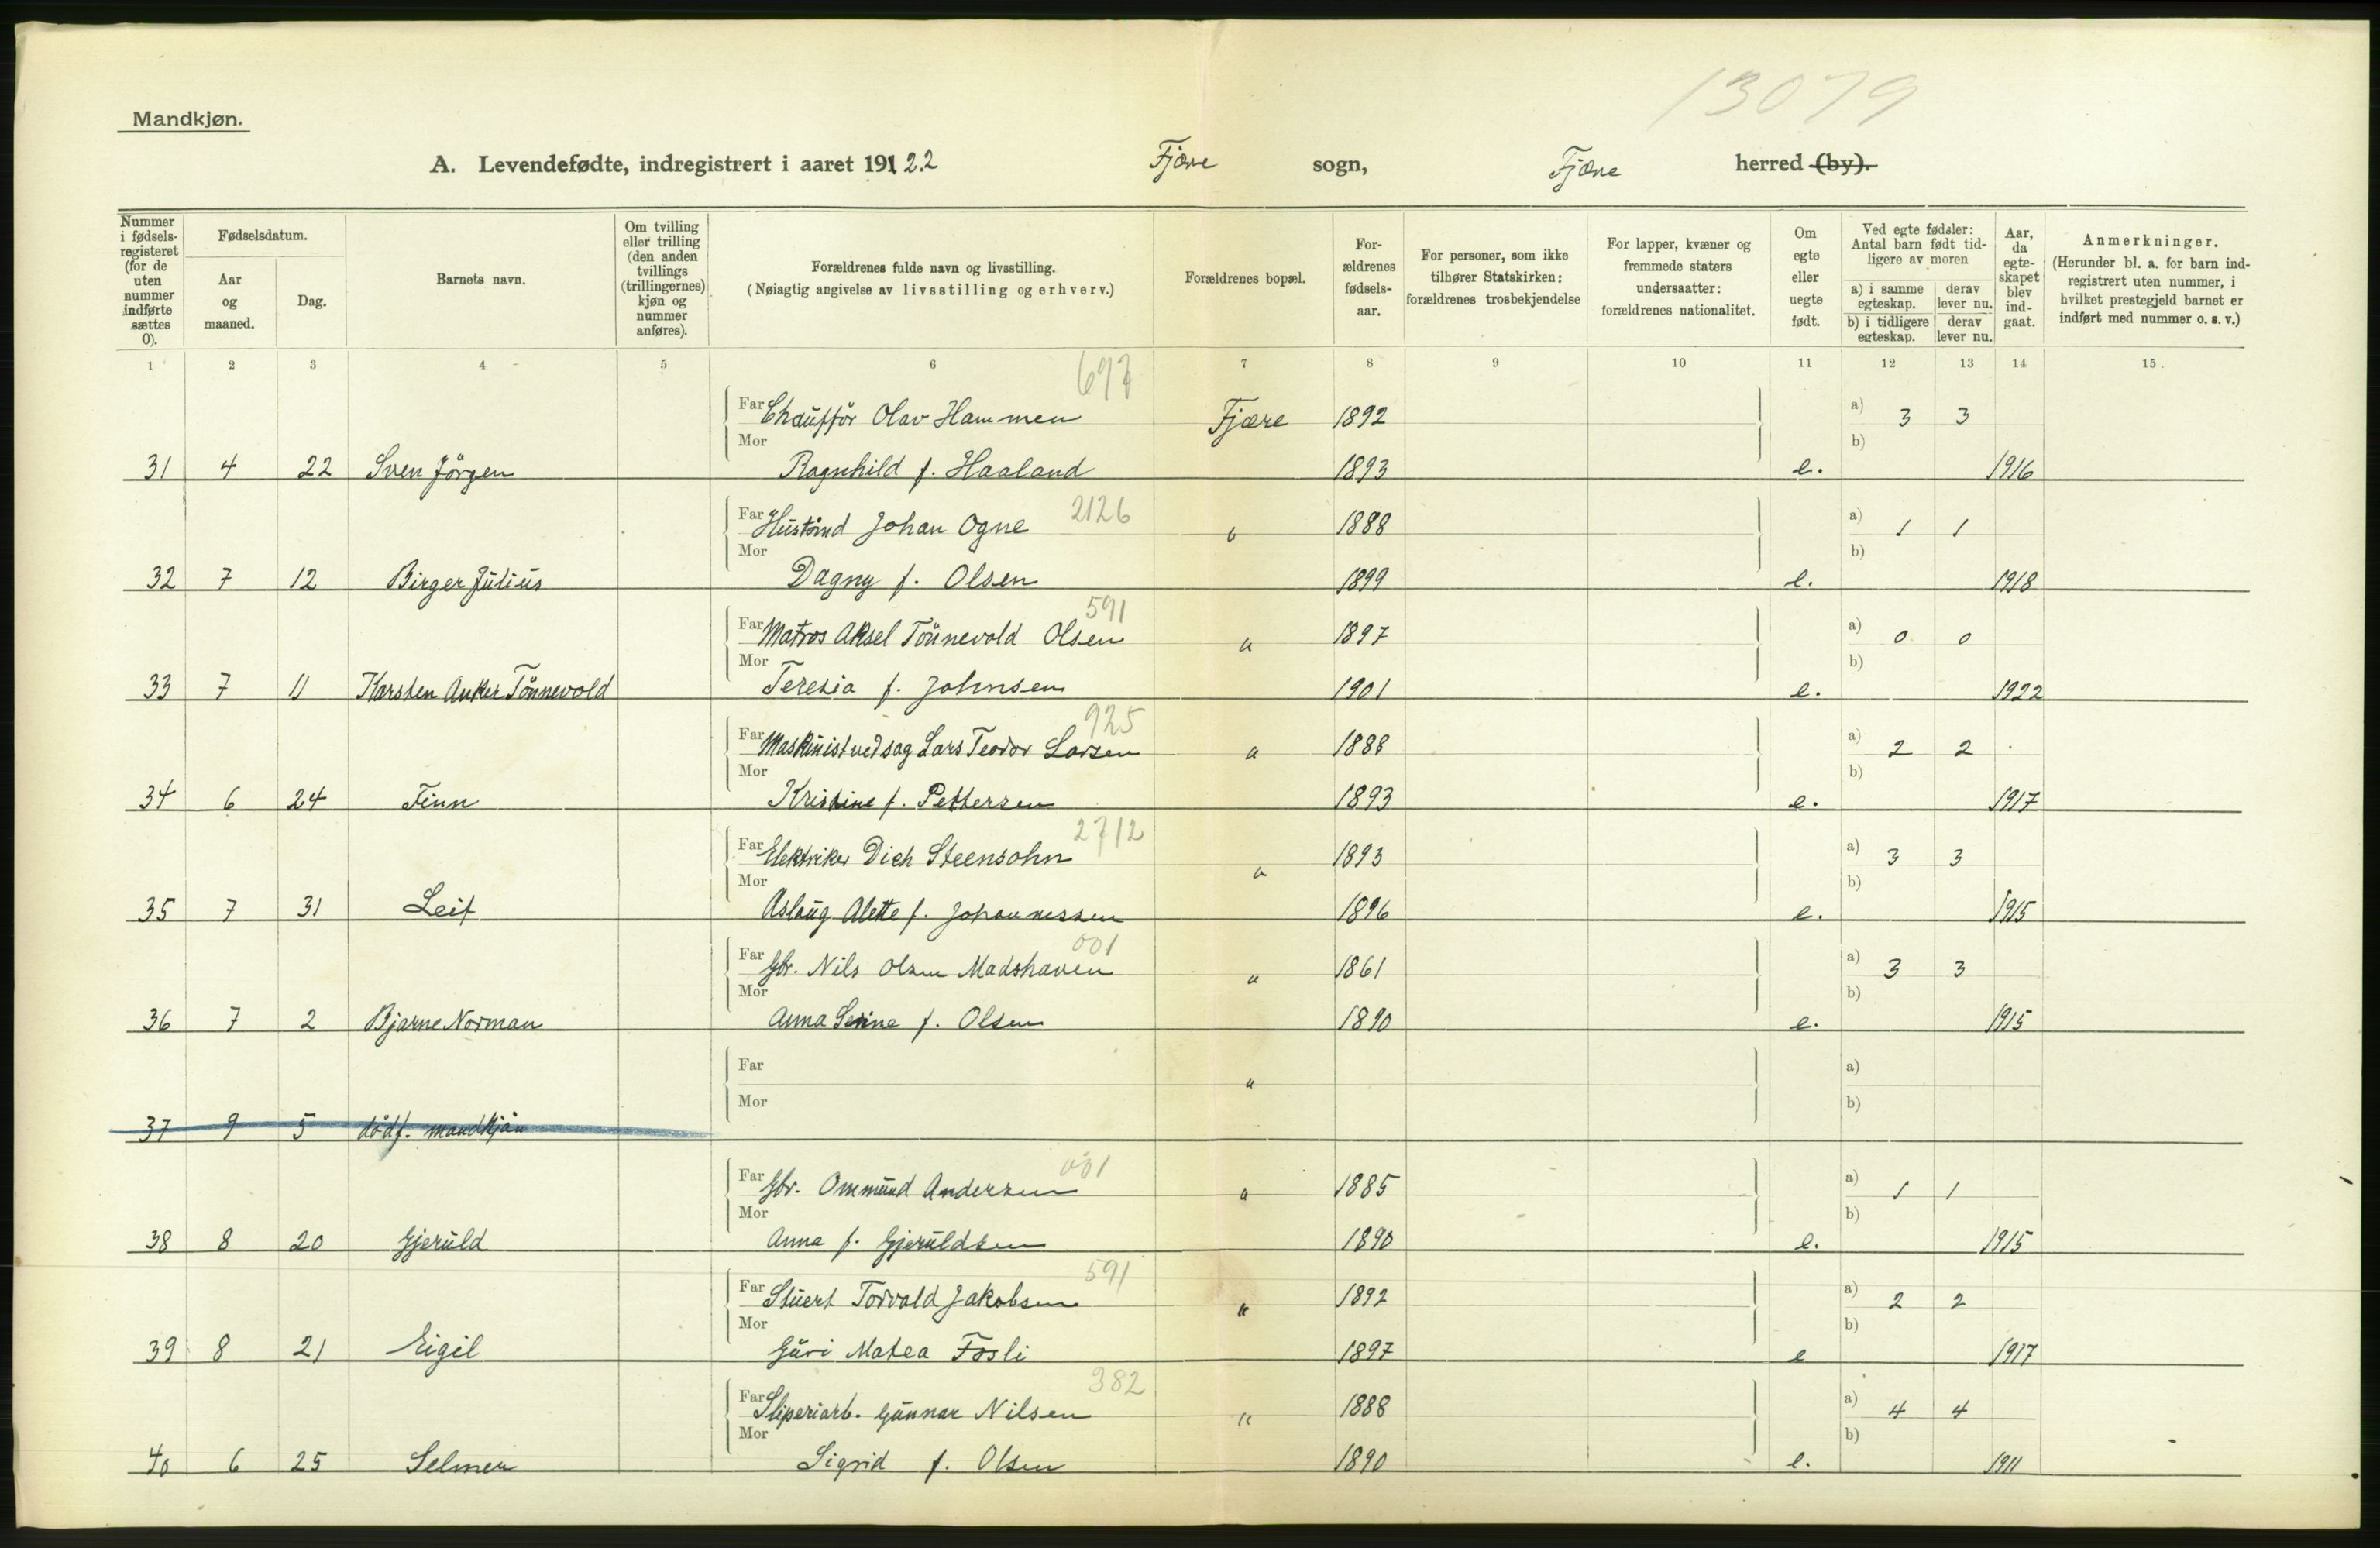 13079
Mandkjøn.
A. Levendefødte, indregistrert i aaret 1922. Fjære sogn, Fjære herred (by).
Nummer i fødsels-registeret (for de uten nummer indførte sættes 0).
Fødselsdatum.
Aar og maaned.
Dag.
Barnets navn.
Om tvilling eller trilling (den anden tvillings (trillingernes) kjøn og nummer anføres).
Forældrenes fulde navn og livsstilling. (Nøiagtig angivelse av livsstilling og erhverv.)
Forældrenes bopæl.
For-ældrenes fødsels-aar.
For personer, som ikke tilhører Statskirken: forældrenes trosbekjendelse
For lapper, kvæner og fremmede staters undersaatter: forældrenes nationalitet.
Om egte eller uegte født.
Ved egte fødsler: Antal barn født tid-ligere av moren
a) i samme egteskap.
derav lever nu.
b) i tidligere egteskap.
derav lever nu.
Aar, da egte-skapet blev ind-gaat.
Anmerkninger. (Herunder bl. a. for barn ind-registrert uten nummer, i hvilket prestegjeld barnet er indført med nummer o. s. v.)
1 2 3 4 5 6 7 8 9 10 11 12 13 14 15.
697
Far Chaufför Olav Hammen Fjære 1892 a) 3 3
Mor b)
31 4 22 Sven Jörgen Ragnhild f. Haaland 1893 e. 1916
Far Johan Ogne 2126 " 1888 a) 1 1
Mor b)
32 7 12 Birger Julius Dagny f. Olsen 1899 e. 1918
591
Far Matros Aksel Tönnevold Olsen " 1897 a) 0 0
Mor b)
33 7 11 Karsten Anker Tönnevold Teresia f. Johnsen 1901 e. 1922
925
Far Maskinist ved sag Lars Teodor Larsen " 1888 a) 2 2
Mor b)
34 6 24 Finn Kristine f. Pettersen 1893 e. 1917
2712
Far Elektriker Dich Steensohn " 1893 a) 3 3
Mor b)
35 7 31 Leif Aslaug Alette f. Johannessen 1896 e. 1915
001
Far Gbr. Nils Olsen Madshaven " 1861 a) 3 3
Mor b)
36 7 2 Bjarne Norman Anna Serine f. Olsen 1890 e. 1915
Far " a)
Mor b)
37 9 5 dödf. mandkjön
001
Far Gbr. Ommund Andersen " 1885 a) 1 1
Mor b)
38 8 20 Gjeruld Anna f. Gjeruldsen 1890 e. 1915
591
Far Stuert Torvald Jakobsen " 1892 a) 2 2
Mor b)
39 8 21 Eigil Guri Matea Fosli 1897 e 1917
382
Far Sliperiarb. Gunnar Nilsen " 1888 a) 4 4
Mor b)
40 6 25 Selmer Sigrid f. Olsen 1890 e. 1911